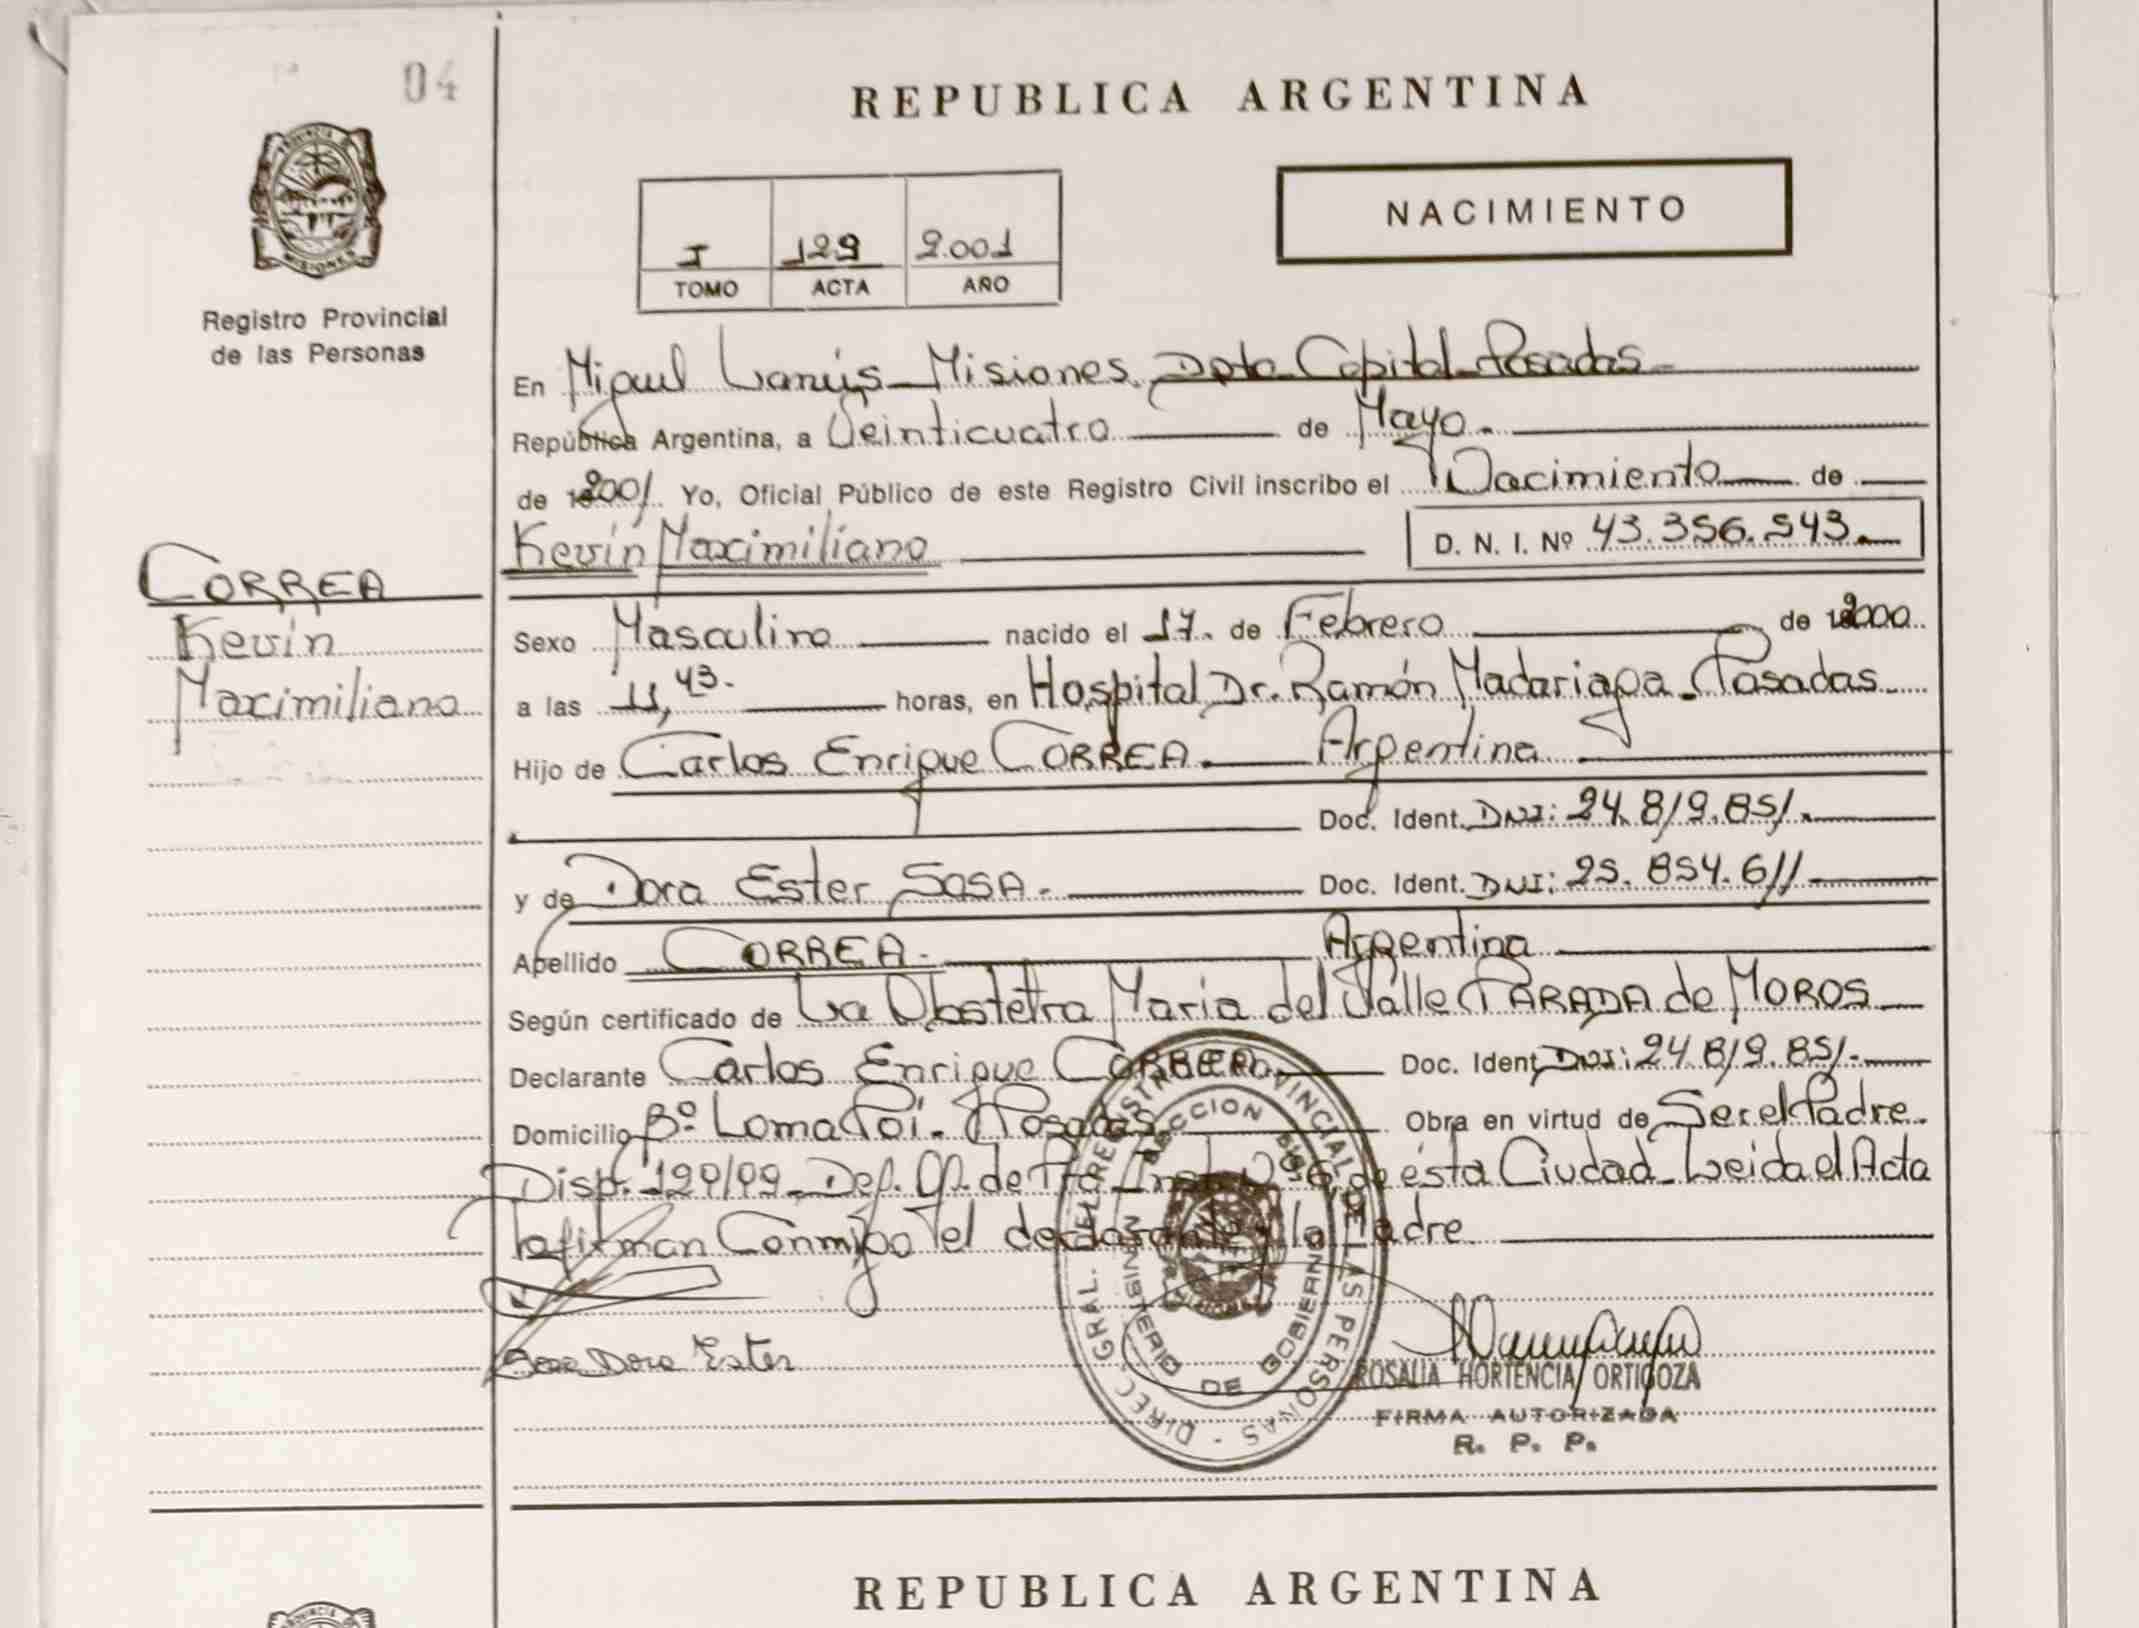 04
REPUBLICA ARGENTINA
PROVINCIA DE MISIONES
Registro Provincial
de las Personas
NACIMIENTO
I 129 2.001
TOMO ACTA AÑO
En Miguel Lanús Misiones. Dpto Capital Posadas
República Argentina, a Veinticuatro de Mayo.
de 2001. Yo, Oficial Público de este Registro Civil inscribo el Nacimiento de
Kevin Maximiliano D. N. I. Nº 43.356.543.
CORREA
Kevin
Maximiliano
Sexo Masculino nacido el 17. de Febrero de 2000
a las 11,43. horas, en Hospital Dr. Ramón Madariaga. Posadas
Hijo de Carlos Enrique CORREA. Argentina
Doc. Ident. DNI: 24.819.851.
y de Dora Ester SOSA. Doc. Ident. DNI: 25.854.611
Apellido CORREA. Argentina
Según certificado de La Obstetra Maria del Valle PARADA de MOROS
Declarante Carlos Enrique CORREA. Doc. Ident. DNI: 24.819.851.
Domicilio Bº Loma Poi. Posadas Obra en virtud de Ser el Padre.
Disp. 129/99 Def. Of. de Nº 6 de ésta Ciudad. Leida el Acta
la firman Conmigo el declarante y la Madre.
Sosa Dora Ester
DIREC. GRAL. DEL REGISTRO PROVINCIAL DE LAS PERSONAS
MINISTERIO DE GOBIERNO
ROSALIA HORTENCIA ORTIGOZA
FIRMA AUTORIZADA
R. P. P.
REPUBLICA ARGENTINA